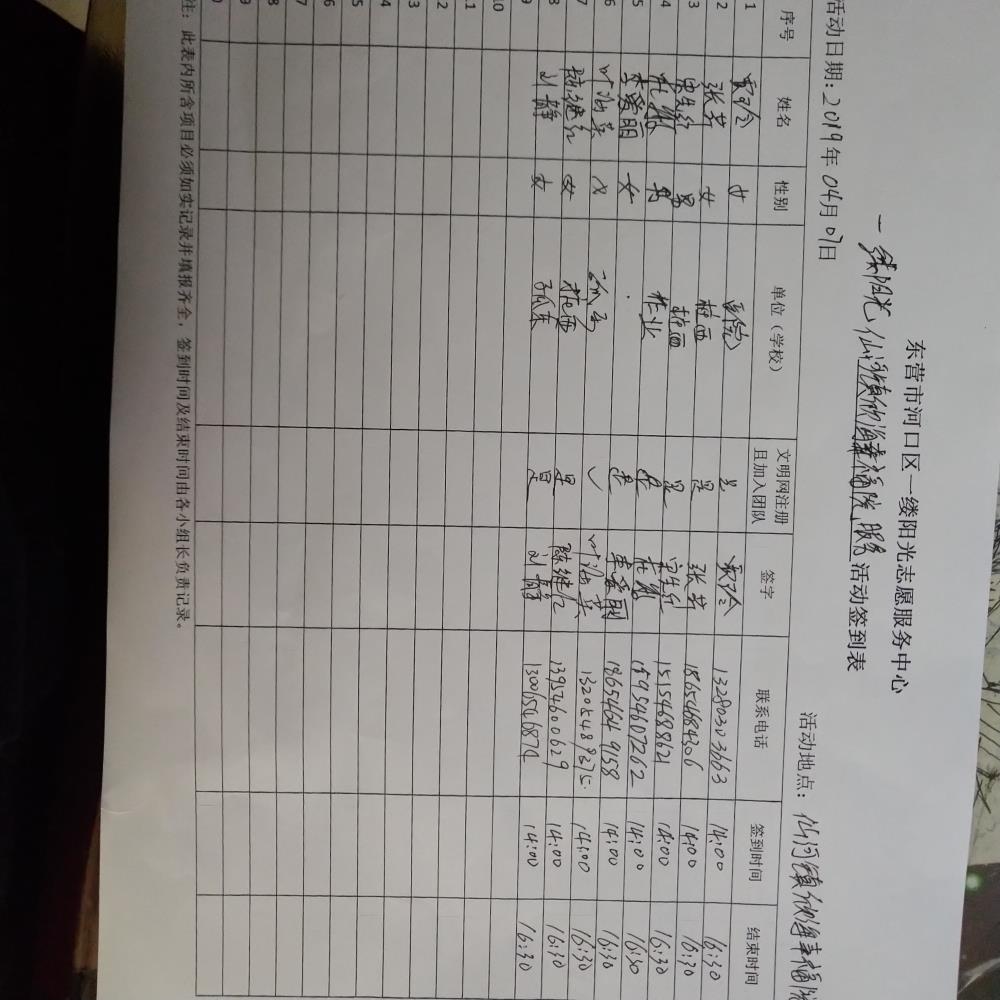 东营市河口区一缕阳光志愿服务中心
一缕阳光仙河镇欣海幸福院服务活动签到表
活动日期：2019年04月07日 活动地点：仙河镇欣海幸福院
序号 姓名 性别 单位（学校） 文明网注册且加入团队 签字 联系电话 签到时间 结束时间
1 女 医院 是 13280303663 14:00 16:30
2 张芳 女 桩西 是 张芳 18654684306 14:00 16:30
3 男 桩西 是 15154688621 14:00 16:30
4 男 作业 是 18954607262 14:00 16:30
5 李爱丽 女 是 李爱丽 18654649158 14:00 16:30
6 叶海英 叶海英 14:00 16:30
7 陈继红 女 桩西 是 陈继红 13954600629 14:00 16:30
8 刘静 女 孤东 是 刘静 13006546874 14:00 16:30
9
10
11
2
3
4
5
6
7
8
9
0
注：此表内所含项目必须如实记录并填报齐全，签到时间及结束时间由各小组长负责记录。